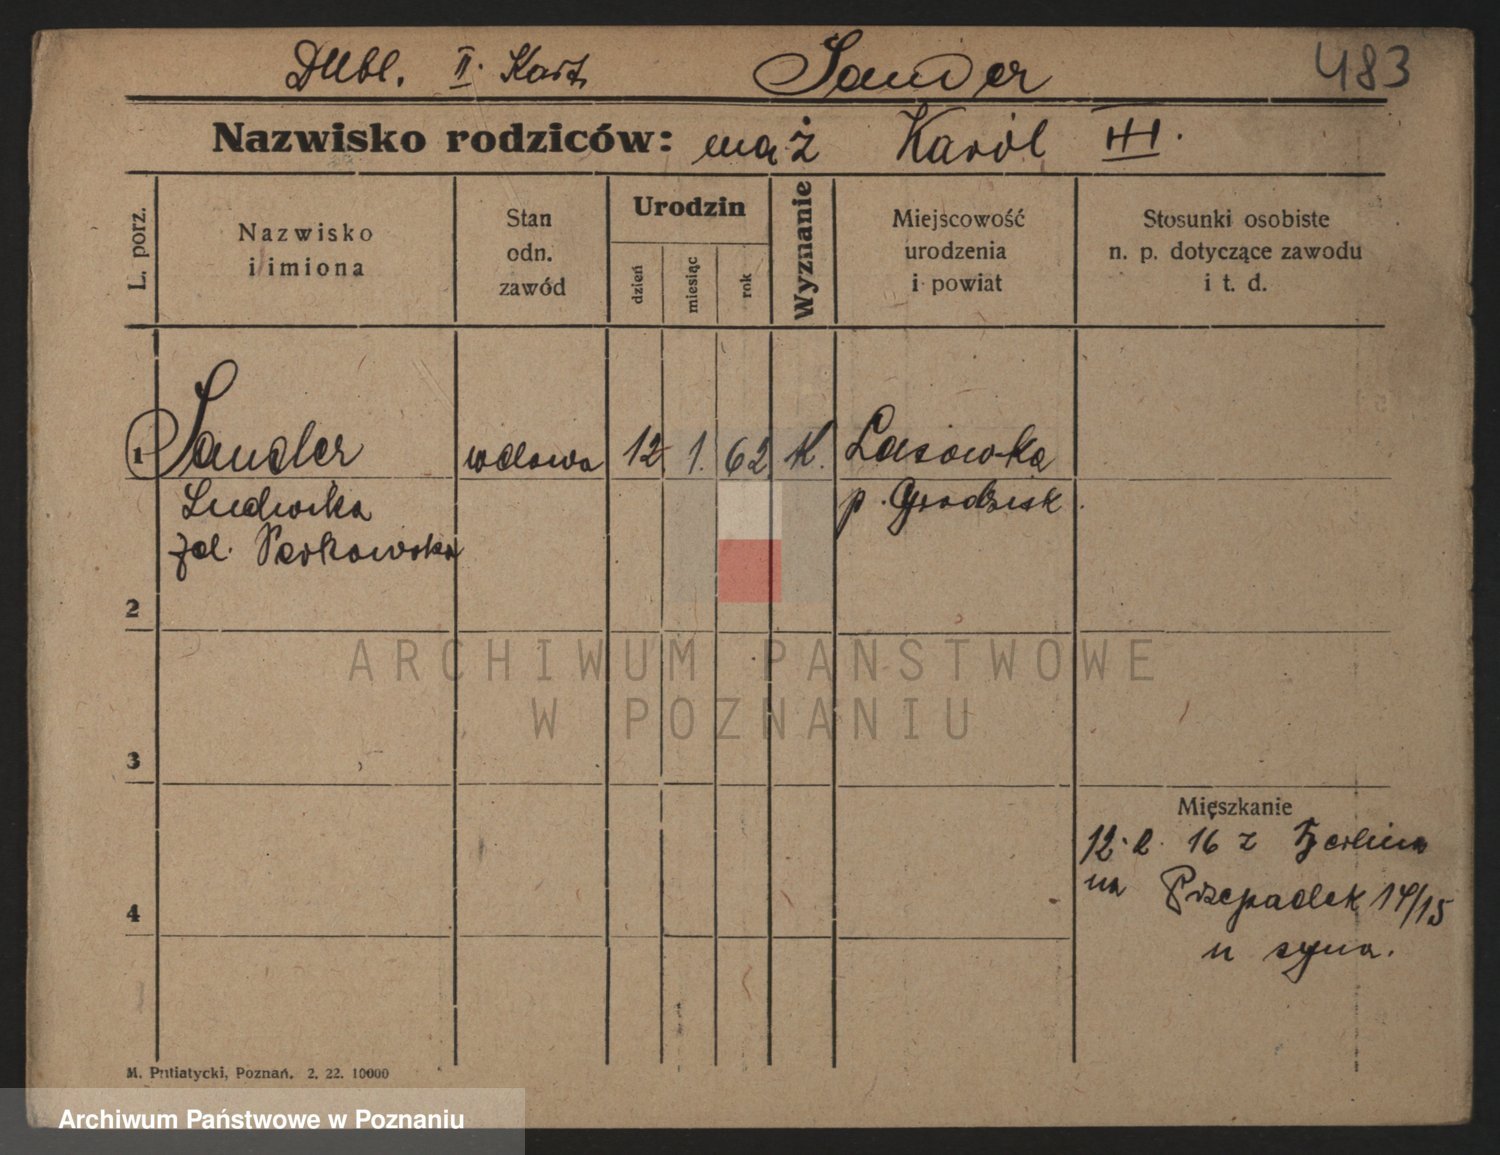 Dubl. II. Kart. Sander 483
Nazwisko rodziców: mąż Karól III.
L. porz.
Nazwisko
i imiona
Stan
odn.
zawód
Urodzin
dzień
miesiąc
rok
Wyznanie
Miejscowość
urodzenia
i powiat
Stosunki osobiste
n. p. dotyczące zawodu
i t. d.
1 Sander wdowa 12 1. 62 K. Lasówka
Ludwika p. Grodzisk.
Perkowska
2
3
4
Mieszkanie
12. 2. 16 z Berlina
na Przepadek 14/15
u syna.
M. Putiatycki, Poznań. 2. 22. 10000
ARCHIWUM PAŃSTWOWE
W POZNANIU
Archiwum Państwowe w Poznaniu